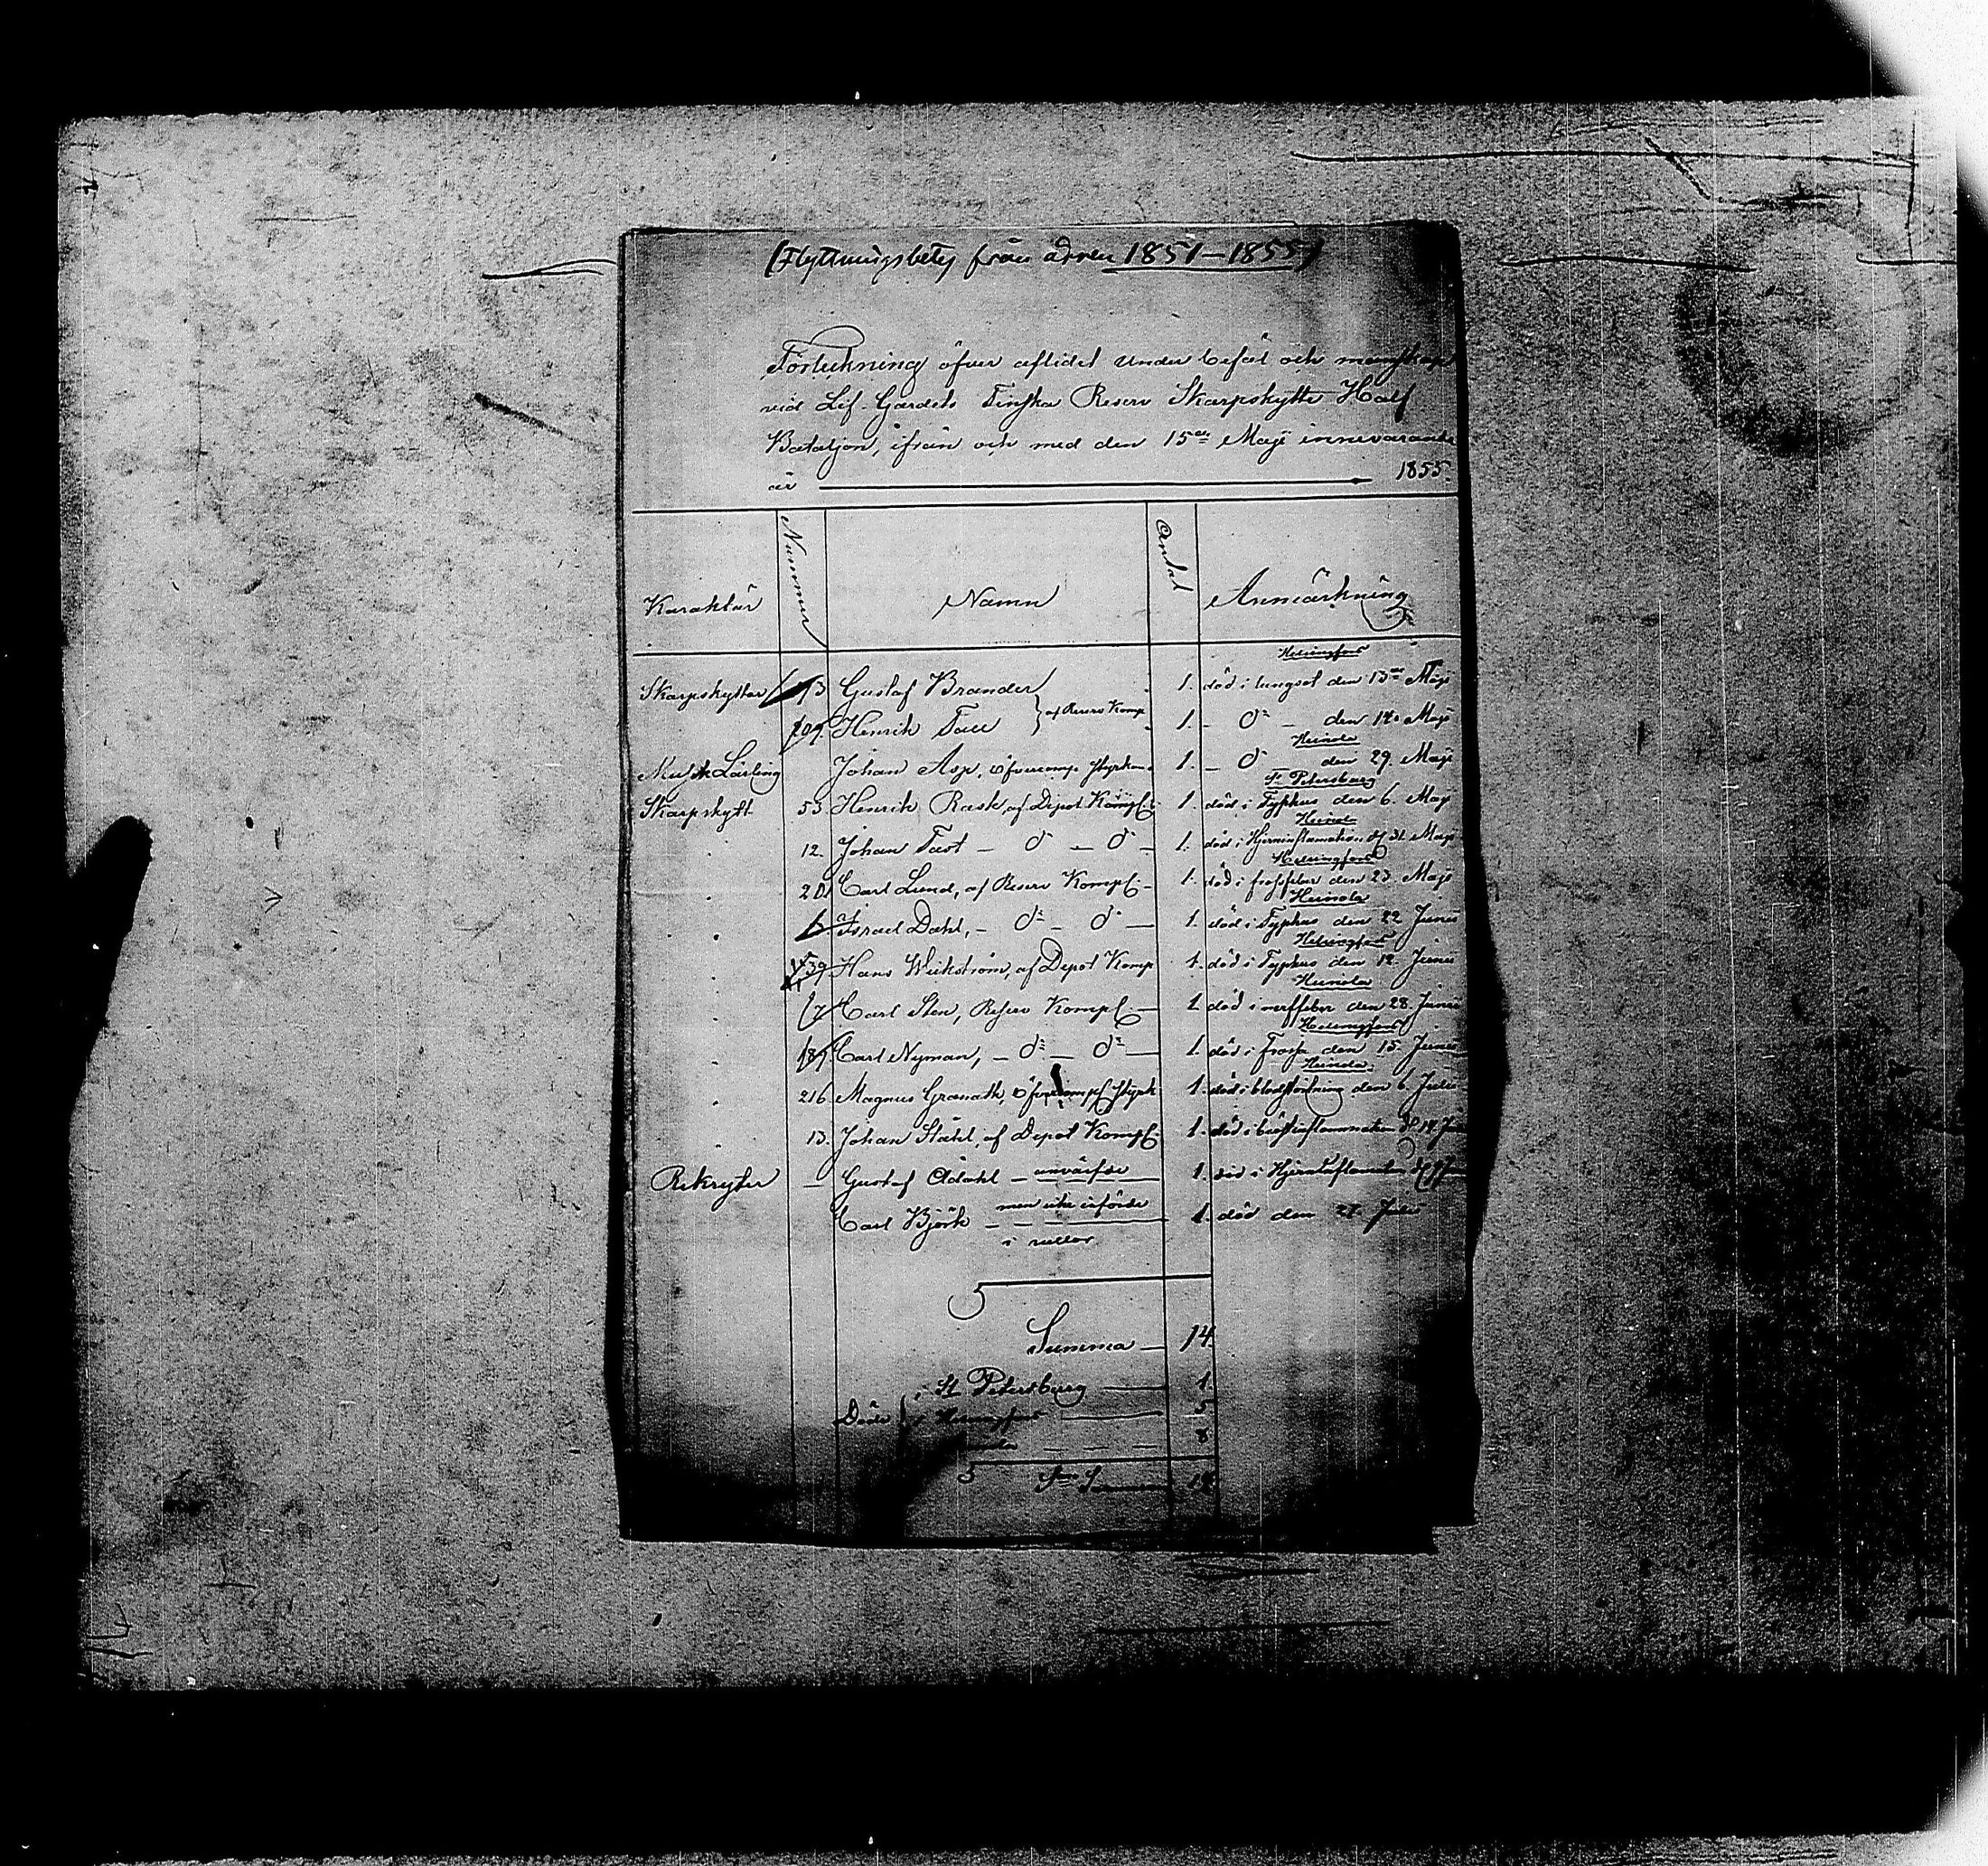 (Flyttningsbetyg från åren 1851–1855)
Förteckning öfver aflidet under befäl och manskap
vid Lif-Gardets Finska Reserv Skarpskytte Half
Bataljon, ifrån och med den 15de Maji innevarande
år 1855.
Karaktär Nummer Namn Antal Anmärkning
Helsingfors
Skarpskyttar Gustaf Brander 1. död i lungsot den 15de Maji
} af Reserv Komp
109. Henrik 1. – do – den Maji
Heinola
Musik Lärling Johan Asp, 1. – do den 29. Maji
St Petersburg
Skarpskytt 53. Henrik Rask, af Depot Komp: 1. död i Typhus den 6. Maji
Heinola
12. Johan Tast – do – do – 1. död i Hjerninflamation d 31. Maji
Helsingfors
20. Carl Lund, af Reserv Komp: – 1. död i frossfeber den 23. Maji
Heinola
Israel Dahl, – do – do – 1. död i Typhus den 22 Junii
Helsingfors
139. Hans Wickström, af Depot Komp 1. död i Typhus den 12. Junii
Heinola
17 Carl Sten, Reserv Komp: – 1. död i nerffeber den 28. Junii
Helsingfors
189. Carl Nyman, – do – do – 1. död i Frossa den 15. Junii
Heinola
216 Magnus Granath, 1. död i blodstörtning den 6. Julii
13. Johan Ståhl, af Depot Komp: 1. död i bröstinflammation
Rekryter – Gustaf Ådahl – anvärfde 1. död i Hjerninflamation
men icke införde
Carl Björk – – 1. död den 27. Julii
i rullor.
Summa – 14.
i St Petersburg – 1.
Döde i Helsingfors – 5
Heinola – – – 8
Summa 14